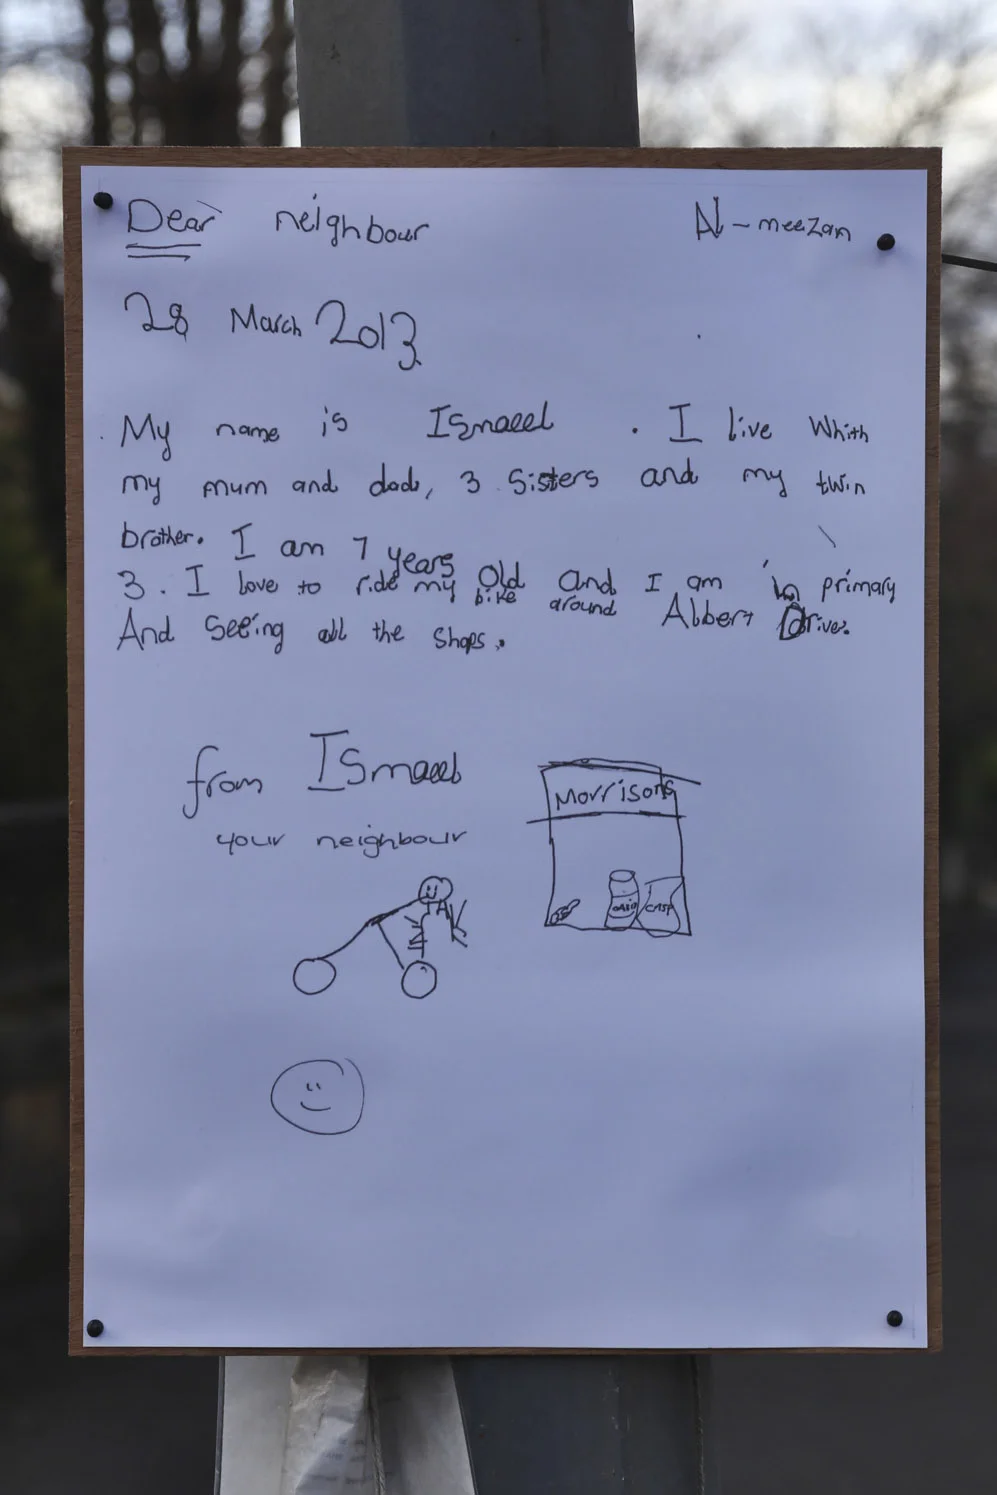 Dear neighbour
Al-meezan
28 March 2013
My name is Ismaeel . I live Whith
my mum and dad, 3 Sisters and my twin
brother. I am 7 years old and I am in primary
3. I love to ride my bike around Albert Drive.
And Seeing all the shops.
from Ismaeel
your neighbour
Morrisons